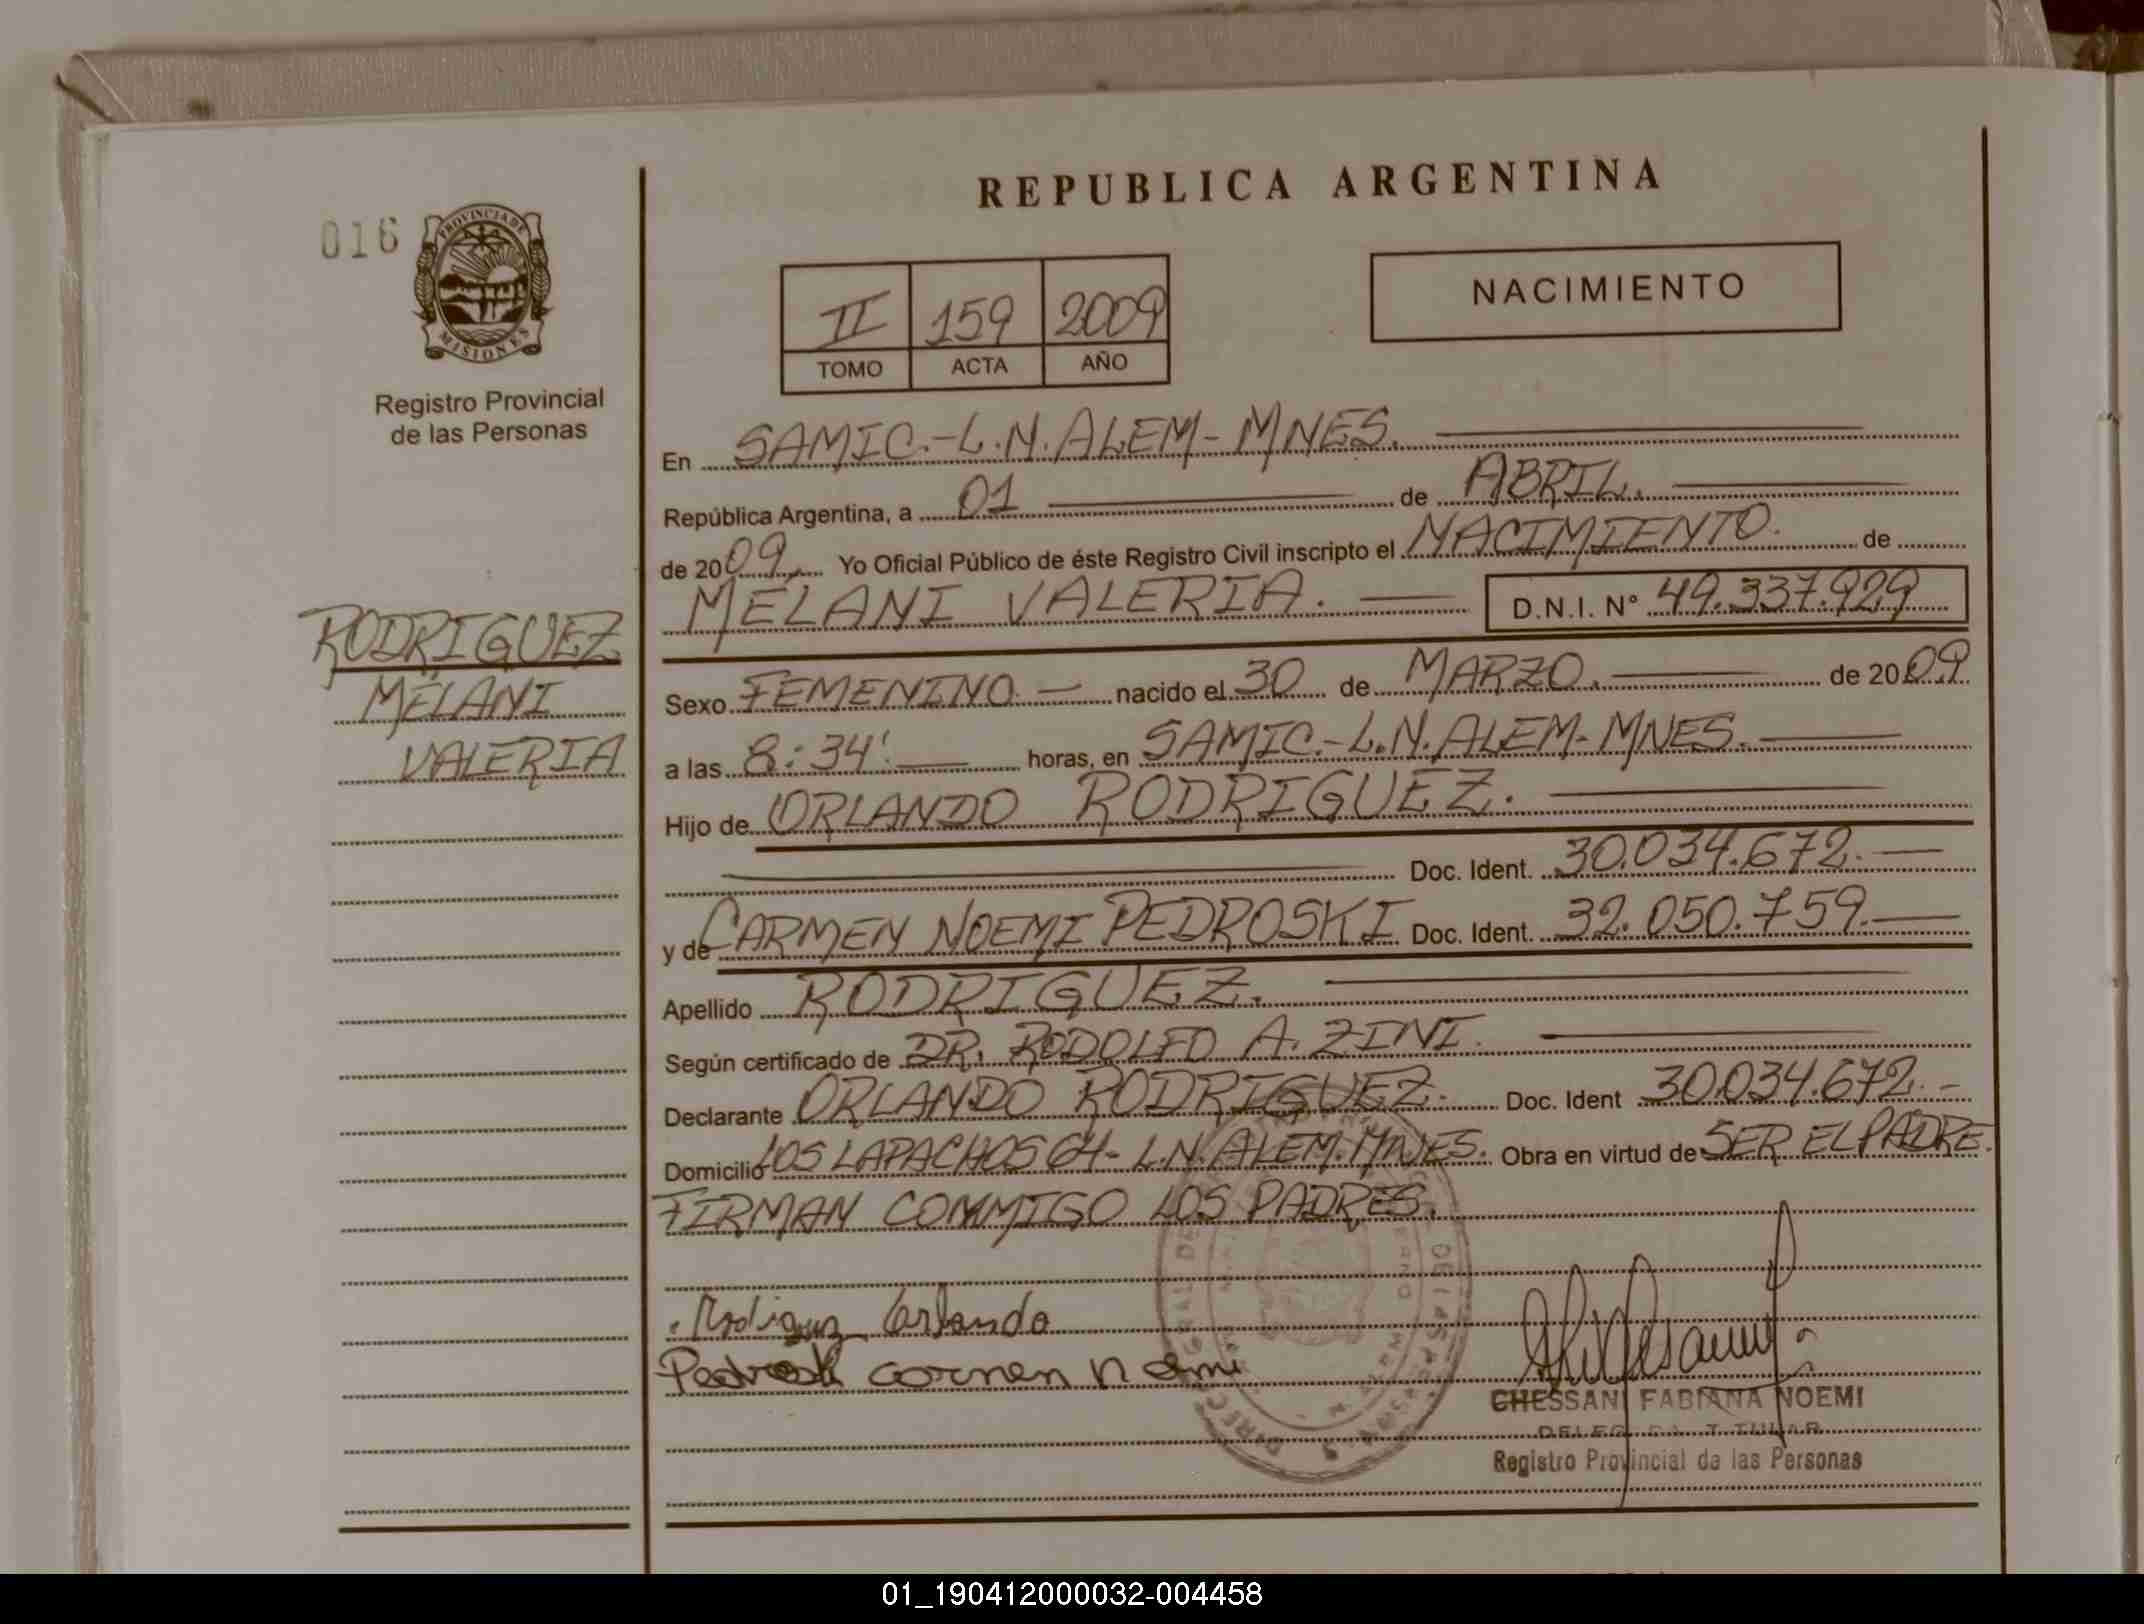 REPUBLICA ARGENTINA
016
PROVINCIA DE
MISIONES
Registro Provincial
de las Personas
NACIMIENTO
II 159 2009
TOMO ACTA AÑO
En SAMIC.-L.N.ALEM-MNES.
República Argentina, a 01 de ABRIL.
de 2009, Yo Oficial Público de éste Registro Civil inscripto el NACIMIENTO. de
MELANI VALERIA. D.N.I. N° 49.337.929
RODRIGUEZ
MELANI
VALERIA
Sexo FEMENINO. nacido el 30 de MARZO. de 2009
a las 8:34'. horas, en SAMIC.-L.N.ALEM-MNES.
Hijo de ORLANDO RODRIGUEZ.
Doc. Ident. 30.034.672.
y de CARMEN NOEMI PEDROSKI Doc. Ident. 32.050.759.
Apellido RODRIGUEZ.
Según certificado de DR. RODOLFO A. ZINI.
Declarante ORLANDO RODRIGUEZ. Doc. Ident 30.034.672.-
Domicilio LOS LAPACHOS 64- L.N.ALEM.MNES. Obra en virtud de SER EL PADRE.
FIRMAN CONMIGO LOS PADRES.
Rodriguez Orlando
Pedroski carmen noemi
CHESSANI FABIANA NOEMI
DELEGADA TITULAR
Registro Provincial de las Personas
01_190412000032-004458